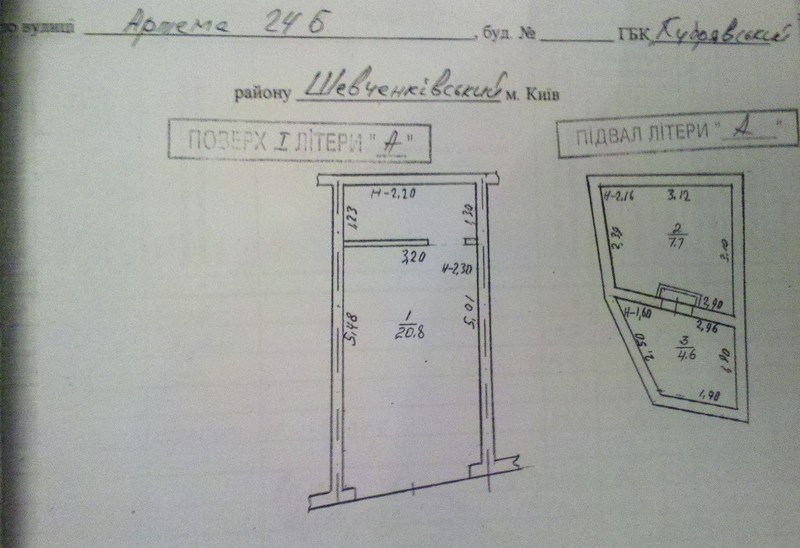 по вулиці Артема 24 б, буд. № ГБК Кудрявський
району Шевченківський м. Київ
ПОВЕРХ I ЛІТЕРИ "А"
ПІДВАЛ ЛІТЕРИ "А"
H-2,20
1,23
1,30
3,20
H-2,30
5,48
1
20.8
5,01
H-2,16
3,12
2
7.7
3,10
2,90
H-1,60
2,96
3
4.6
2,50
1,90